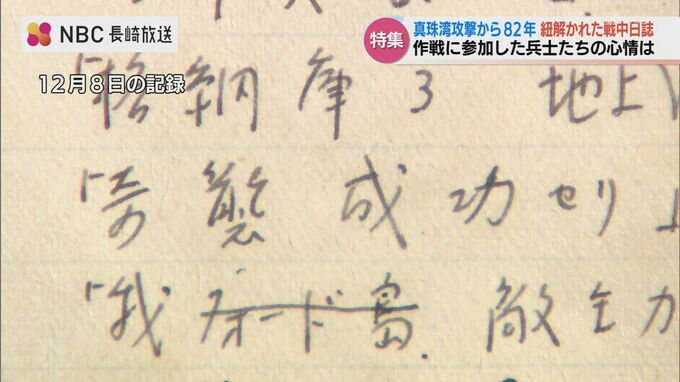 NBC 長崎放送
特集
真珠湾攻撃から82年 紐解かれた戦中日誌
作戦に参加した兵士たちの心情は
12月8日の記録
「格納庫3 地上
「奇襲成功セリ」
「我フォード島 敵主力